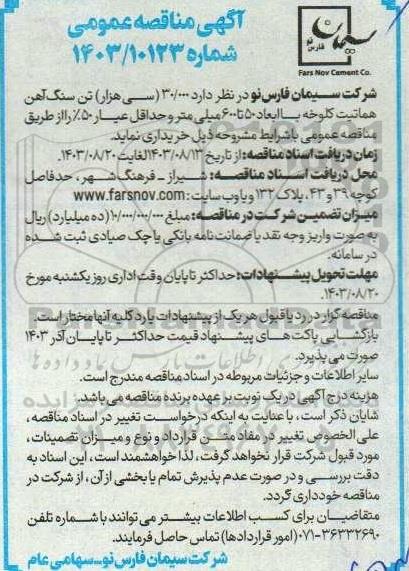 آگهی مناقصه عمومی
شماره ۱۴۰۳/۱۰۱۲۳
سیمان
فارس نو
Fars Nov Cement Co.
شرکت سیمان فارس نو در نظر دارد ۳۰/۰۰۰ (سی هزار) تن سنگ آهن
هماتیت کلوخه با ابعاد ۵۰ تا ۶۰۰ میلی متر و حداقل عیار ۵۰٪ را از طریق
مناقصه عمومی با شرایط مشروحه ذیل خریداری نماید.
زمان دریافت اسناد مناقصه: از تاریخ ۱۴۰۳/۰۸/۱۳ لغایت ۱۴۰۳/۰۸/۲۰.
محل دریافت اسناد مناقصه: شیراز - فرهنگ شهر، حدفاصل
کوچه ۳۹ و ۴۳، پلاک ۱۳۲ و یا وب سایت: www.farsnov.com
میزان تضمین شرکت در مناقصه: مبلغ ۱۰/۰۰۰/۰۰۰/۰۰۰ (ده میلیارد) ریال
به صورت واریز وجه نقد یا ضمانت نامه بانکی یا چک صیادی ثبت شده
در سامانه.
مهلت تحویل پیشنهادات: حداکثر تا پایان وقت اداری روز یکشنبه مورخ
۱۴۰۳/۰۸/۲۰.
مناقصه گزار در رد یا قبول هر یک از پیشنهادات یا رد کلیه آنها مختار است.
بازگشایی پاکت های پیشنهاد قیمت حداکثر تا پایان آذر ۱۴۰۳
صورت می پذیرد.
سایر اطلاعات و جزئیات مربوطه در اسناد مناقصه مندرج است.
هزینه درج آگهی در یک نوبت بر عهده برنده مناقصه می باشد.
شایان ذکر است، با عنایت به اینکه درخواست تغییر در اسناد مناقصه،
علی الخصوص تغییر در مفاد متن قرارداد و نوع و میزان تضمینات،
مورد قبول شرکت قرار نخواهد گرفت، لذا خواهشمند است، این اسناد به
دقت بررسی و در صورت عدم پذیرش تمام یا بخشی از آن، از شرکت در
مناقصه خودداری گردد.
متقاضیان برای کسب اطلاعات بیشتر می توانند با شماره تلفن
۰۷۱-۳۶۳۳۲۶۹۰ (امور قراردادها) تماس حاصل فرمایند.
شرکت سیمان فارس نو-سهامی عام